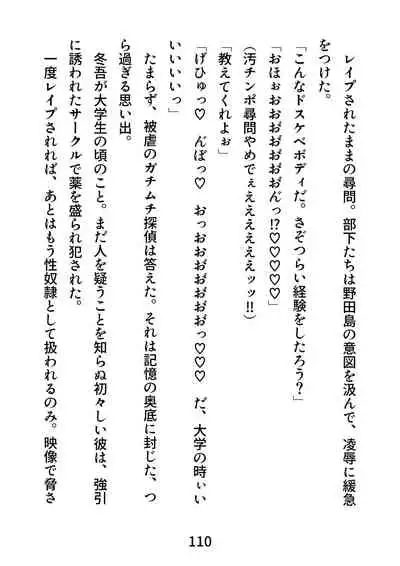 レイプされたままの尋問。部下たちは野田島の意図を汲んで、凌辱に緩急
をつけた。
「こんなドスケベボディだ。さぞつらい経験をしたろう？」
「おほぉおおおおおおおおんっ!?♡♡♡♡」
(汚チンポ尋問やめでぇえええええッッ!!)
「教えてくれよぉ」
「げひゅっ♡　んぼっ♡　おっおおおおおおおおっ♡♡♡　だ、大学の時ぃい
いいいいっ」
　たまらず、被虐のガチムチ探偵は答えた。それは記憶の奥底に封じた、つ
ら過ぎる思い出。
　冬吾が大学生の頃のこと。まだ人を疑うことを知らぬ初々しい彼は、強引
に誘われたサークルで薬を盛られ犯された。
　一度レイプされれば、あとはもう性奴隷として扱われるのみ。映像で脅さ
110